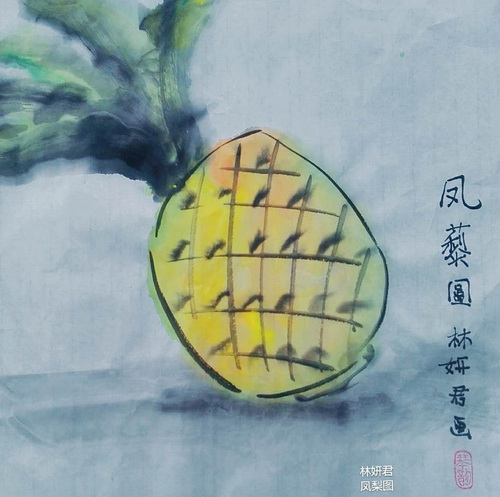 凤藜圖林妍君画
林妍君
凤梨图